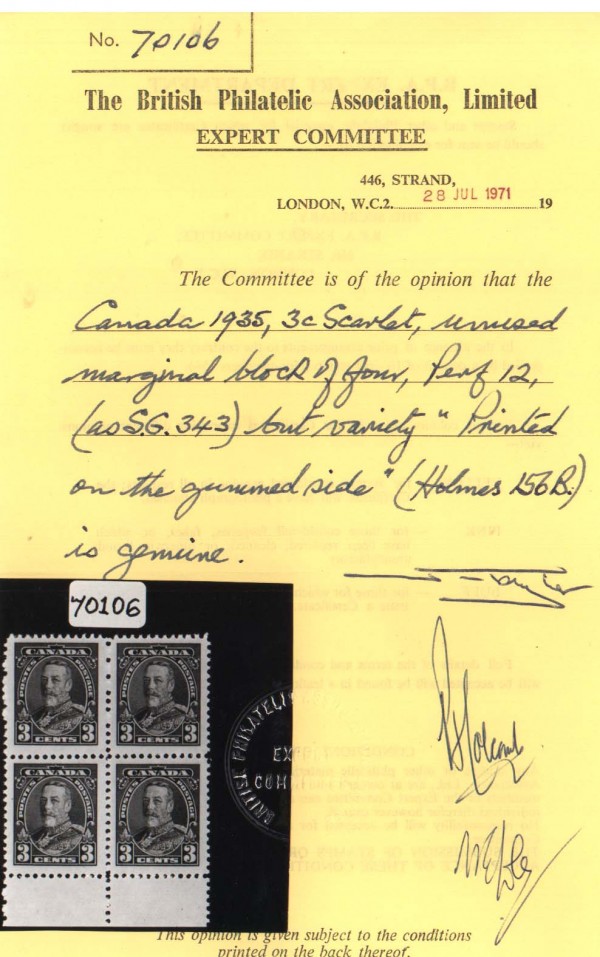 No. 70106
The British Philatelic Association, Limited
EXPERT COMMITTEE
446, STRAND,
LONDON, W.C.2. 28 JUL 1971 19
The Committee is of the opinion that the
Canada 1935, 3c Scarlet, unused
marginal block of four, Perf 12,
(as S.G. 343) but variety "Printed
on the gummed side" (Holmes 156B.)
is genuine.
70106
CANADA CANADA
POSTES POSTAGE POSTES POSTAGE
3 CENTS 3 3 CENTS 3
CANADA CANADA
POSTES POSTAGE POSTES POSTAGE
3 CENTS 3 3 CENTS 3
BRITISH PHILATELI
This opinion is given subject to the conditions
printed on the back thereof.